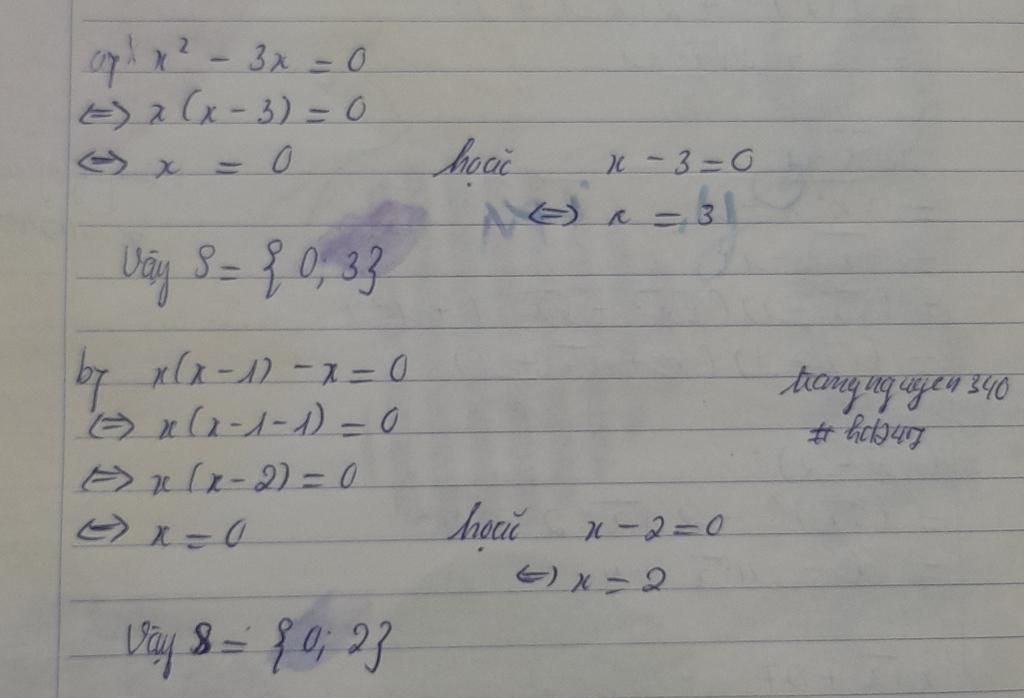 a, x² - 3x = 0
⇔ x(x - 3) = 0
⇔ x = 0 hoặc x - 3 = 0
⇔ x = 3
Vậy S = { 0; 3}
b, x(x - 1) - x = 0
⇔ x(x-1-1) = 0
⇔ x(x - 2) = 0
⇔ x = 0 hoặc x - 2 = 0
⇔ x = 2
Vậy S = {0; 2}
trangnguyen 340